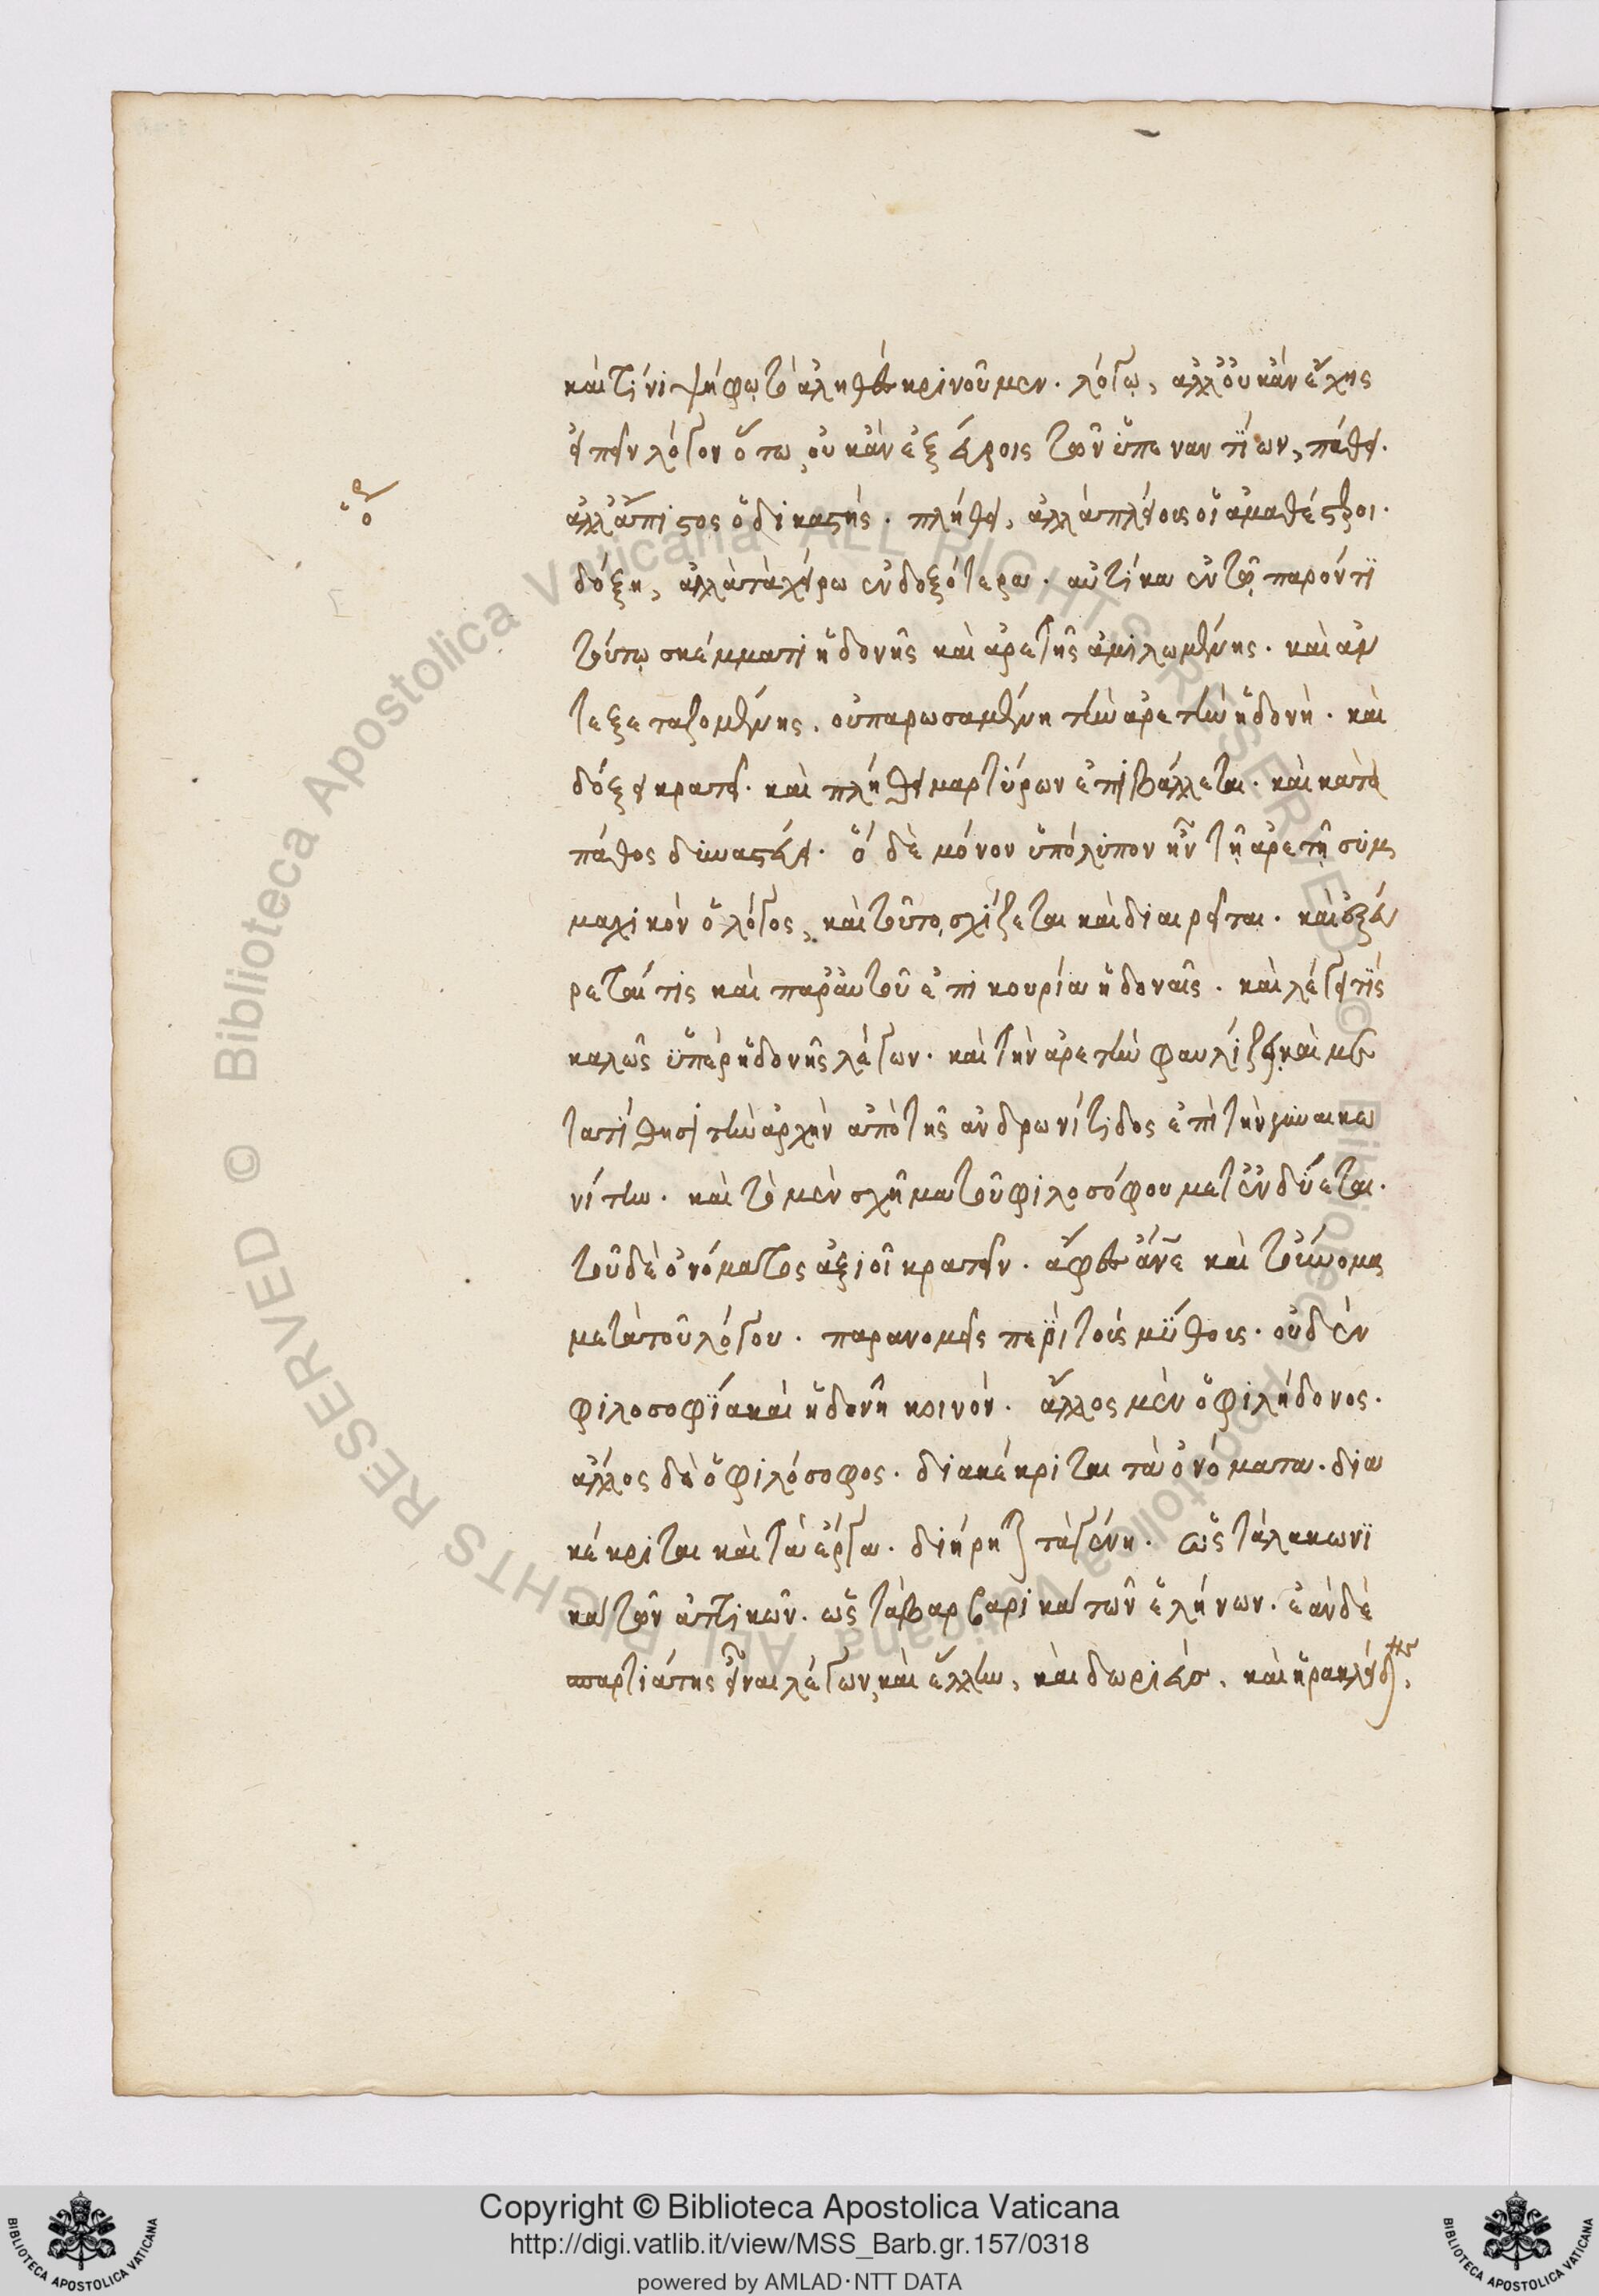 καὶ τίνι ψήφῳ τὸ ἀληθὲς κρινοῦμεν. λόγῳ, ἀλλ' οὐκ ἂν ἔχῃς
εἰπεῖν λόγον ὅτω, οὐκ ἂν ἐξεύροις τῶν ὑπεναντίων, πάθει.
ἀλλ' ἄπιστος ὁ δικαστής. πλήθει, ἀλλὰ πλείους οἱ ἀμαθέστεροι.
δόξῃ, ἀλλὰ τὰ χείρω ἐνδοξότερα. αὐτίκα ἐν τῷ παρόντι
τούτῳ σκέμματι ἡδονῆς καὶ ἀρετῆς ἁμιλωμένης. καὶ ἀν
τεξεταζομένης, οὐ παρωσαμένη τὴν ἀρετὴν ἡδονὴ. καὶ
δόξει κρατεῖ. καὶ πλήθει μαρτύρων ἐπιβάλλεται. καὶ κατὰ
πάθος δυναστεύει. ὃ δὲ μόνον ὑπόλιπον ἦν τῇ ἀρετῇ συμ
μαχικὸν ὁ λόγος, καὶ τοῦτο σχίζεται καὶ διαιρεῖται. καὶ ἐξεύ
ρεταί τις καὶ παρ' αὐτοῦ ἐπικουρία ἡδοναῖς. καὶ λέγει τὶς
καλῶς ὑπὲρ ἡδονῆς λέγων. καὶ τὴν ἀρετὴν φαυλίζει, καὶ με
τατίθησι τὴν ἀρχὴν ἀπὸ τῆς ἀνδρωνίτιδος ἐπὶ τὴν γυναικω
νίτιν. καὶ τὸ μὲν σχῆμα τοῦ φιλοσόφου μετενδύεται.
τοῦ δὲ ὀνόματος ἀξιοῖ κρατεῖν. ἄφες ἄνε καὶ τοὔνομα
μετὰ τοῦ λόγου. παρανομεῖς περὶ τοὺς μύθους. οὐδὲν
φιλοσοφία καὶ ἡδονῆ κοινόν. ἄλλος μὲν ὁ φιλήδονος.
ἄλλος δὲ ὁ φιλόσοφος. διακέκριται τὰ ὀνόματα. δια
κέκριται καὶ τὰ ἔργα. διήρηται τὰ γένη. ὡς τὰ λακωνι
κὰ τῶν ἀττικῶν. ὡς τὰ βαρβαρικὰ τῶν ἑλήνων. ἐὰν δὲ
σπαρτιάτης εἶναι λέγων, καὶ ἕλλην, καὶ δωριεύς, καὶ ἡρακλείδης,
Copyright © Biblioteca Apostolica Vaticana
http://digi.vatlib.it/view/MSS_Barb.gr.157/0318
powered by AMLAD·NTT DATA